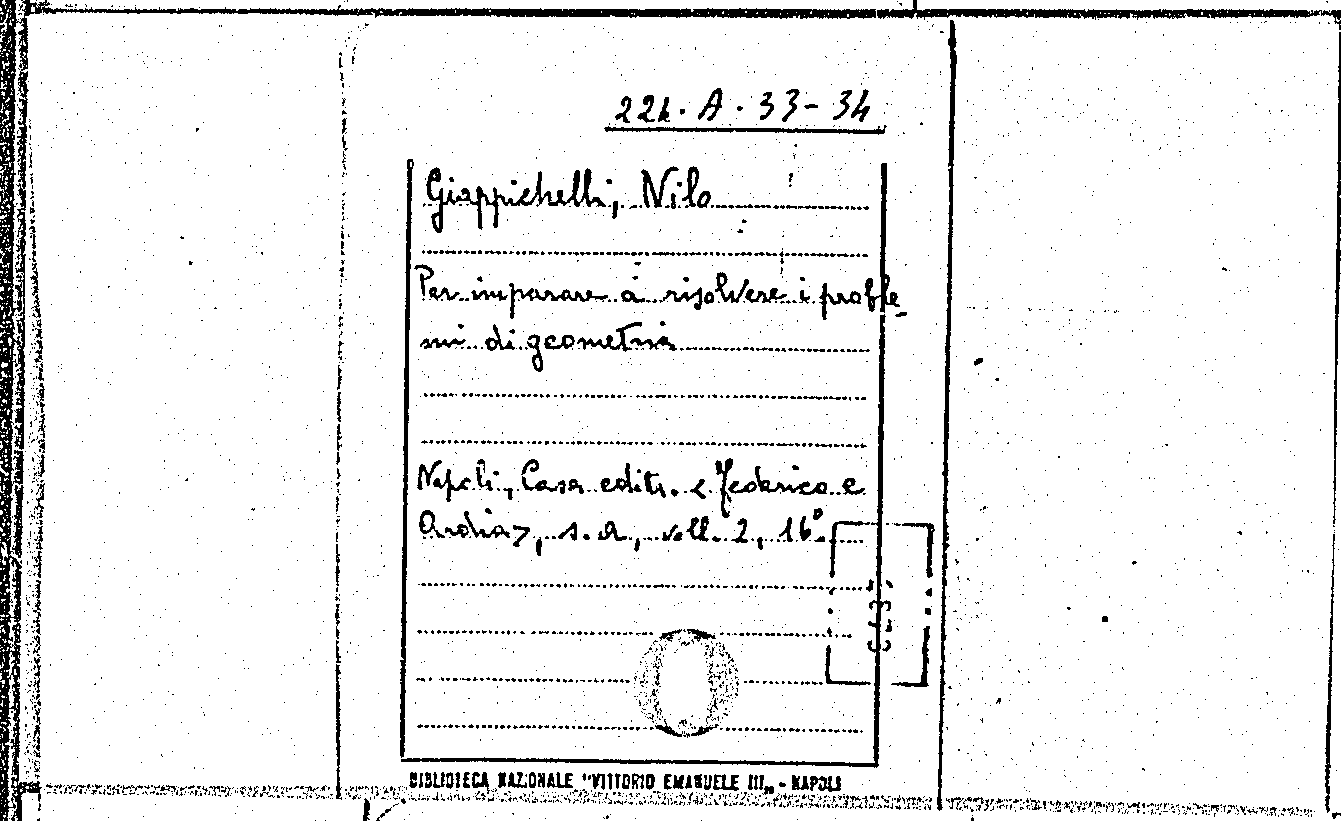 22h. A. 33-34
Giappichelli, Nilo
Per imparare a risolvere i proble_
mi di geometria
Napoli, Casa editr. < Federico e
Ardia >, s.a, voll. 2, 16°.
BIBLIOTECA NAZIONALE "VITTORIO EMANUELE III„ - NAPOLI